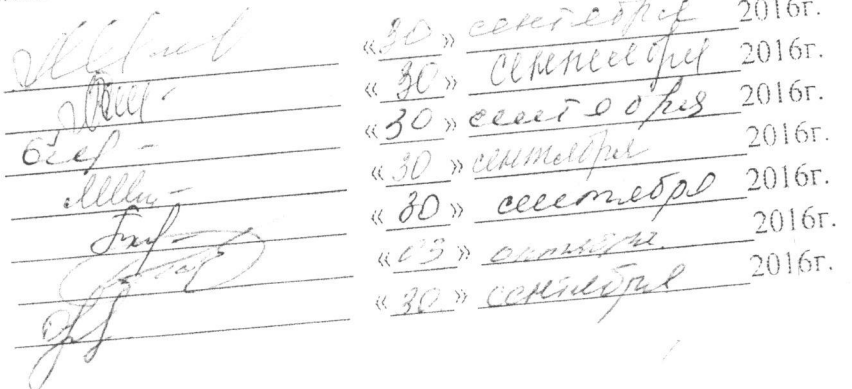 «30» сентября 2016г.
«30» сентября 2016г.
«30» сентября 2016г.
«30» сентября 2016г.
«30» сентября 2016г.
«03» октября 2016г.
«30» сентября 2016г.